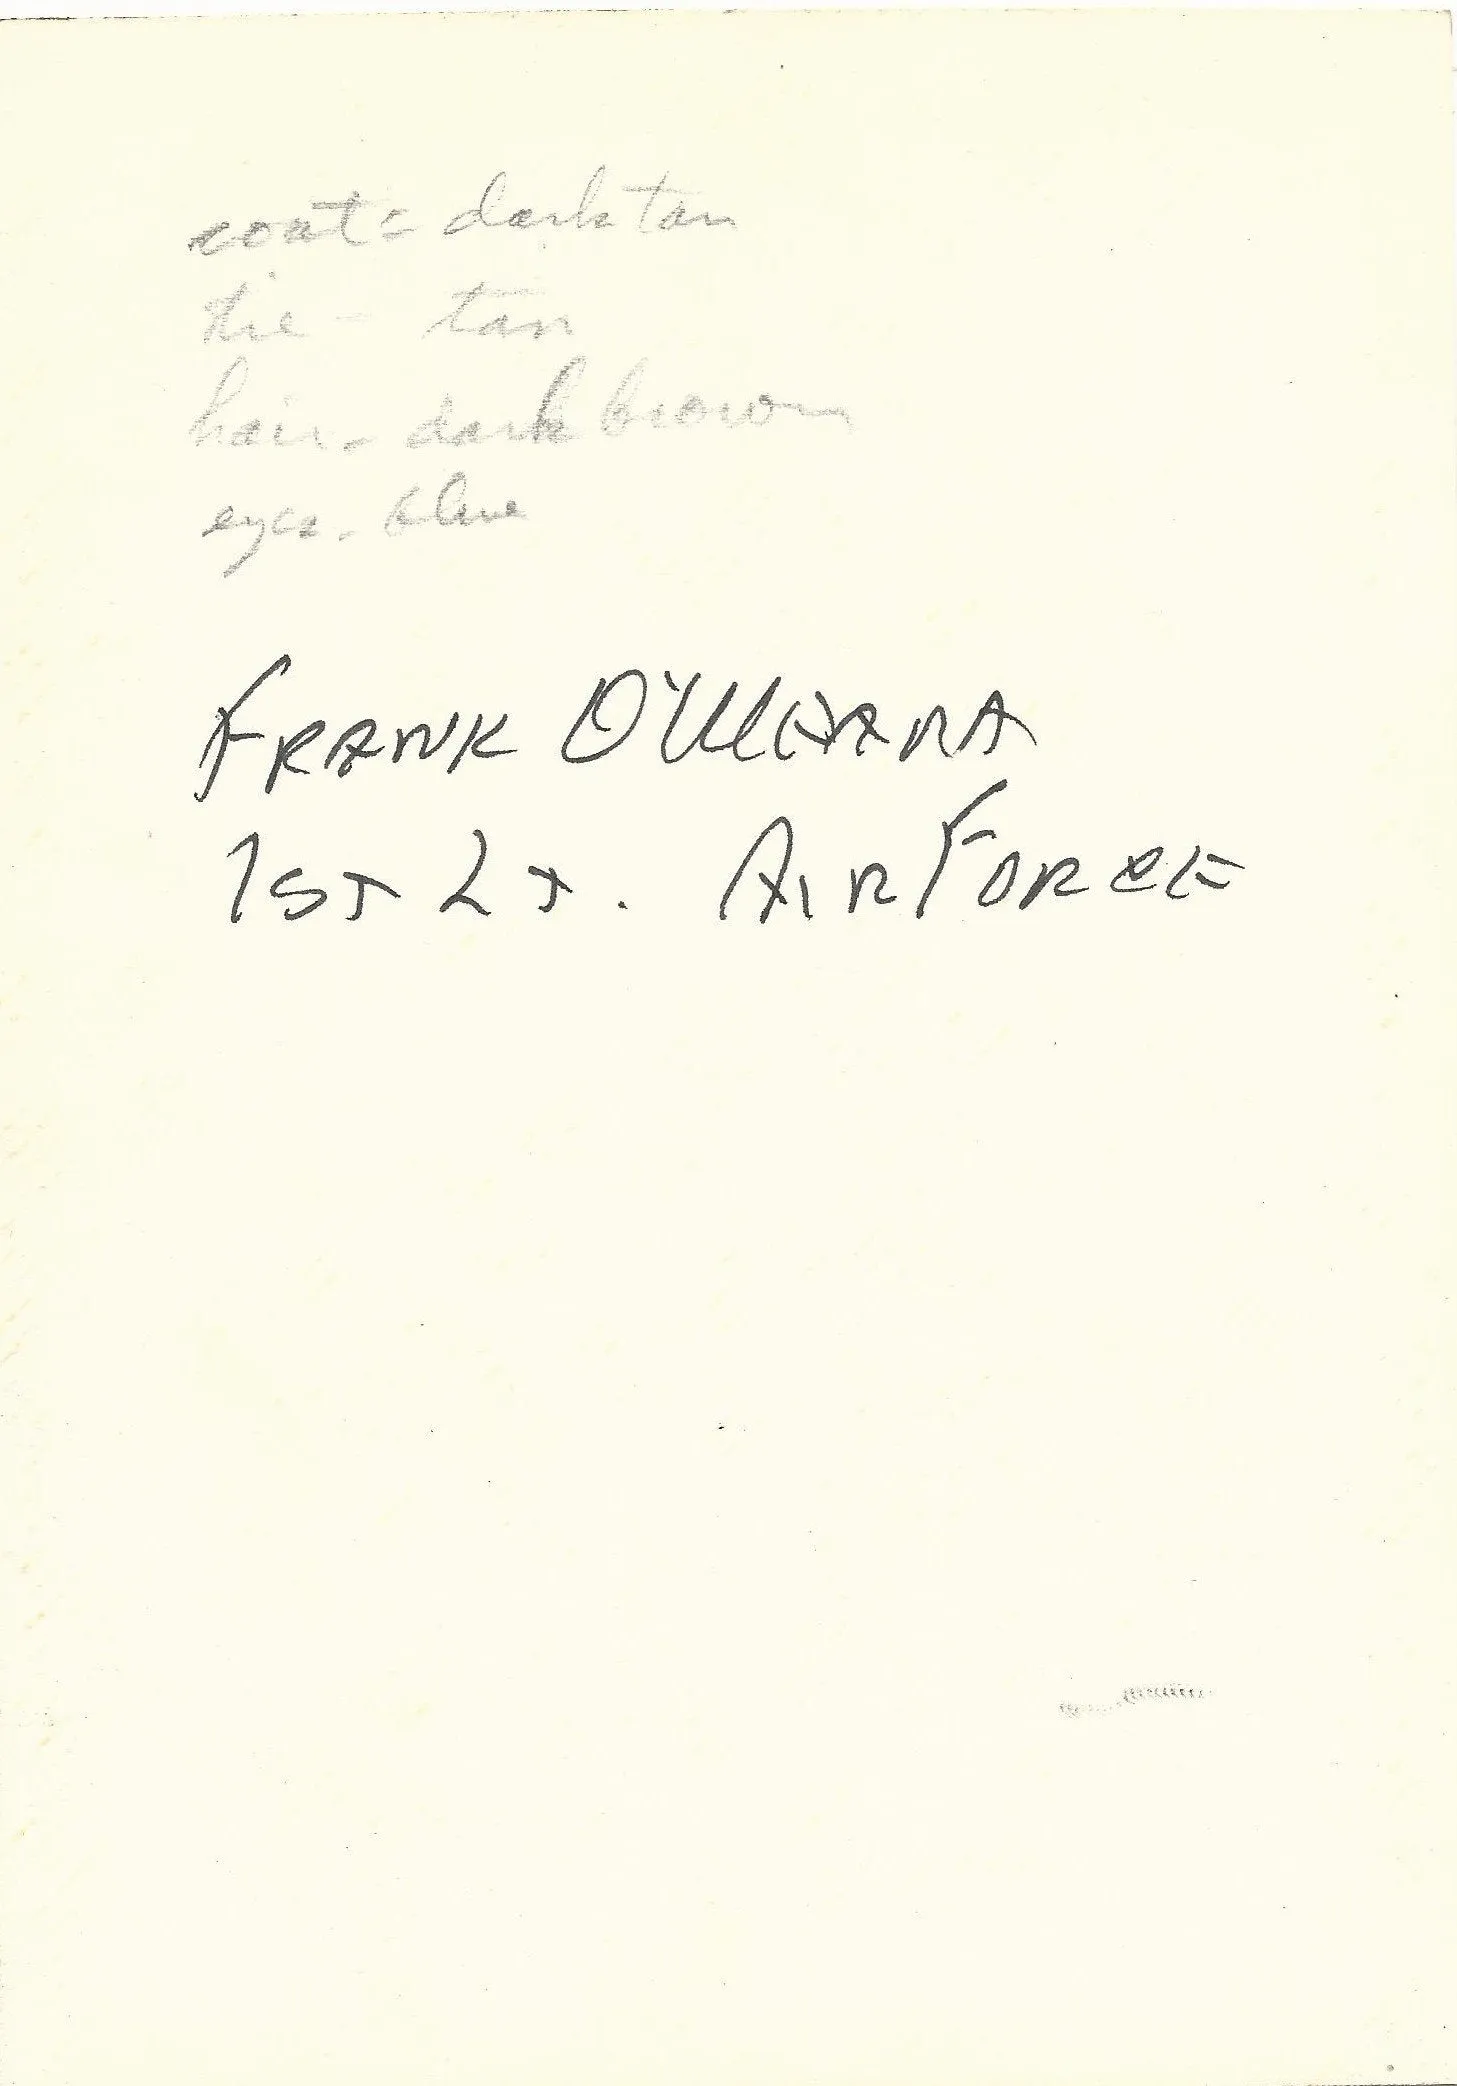 coat = dark tan
tie - tan
hair - dark brown
eyes - blue
FRANK
1ST LT. AIR FORCE